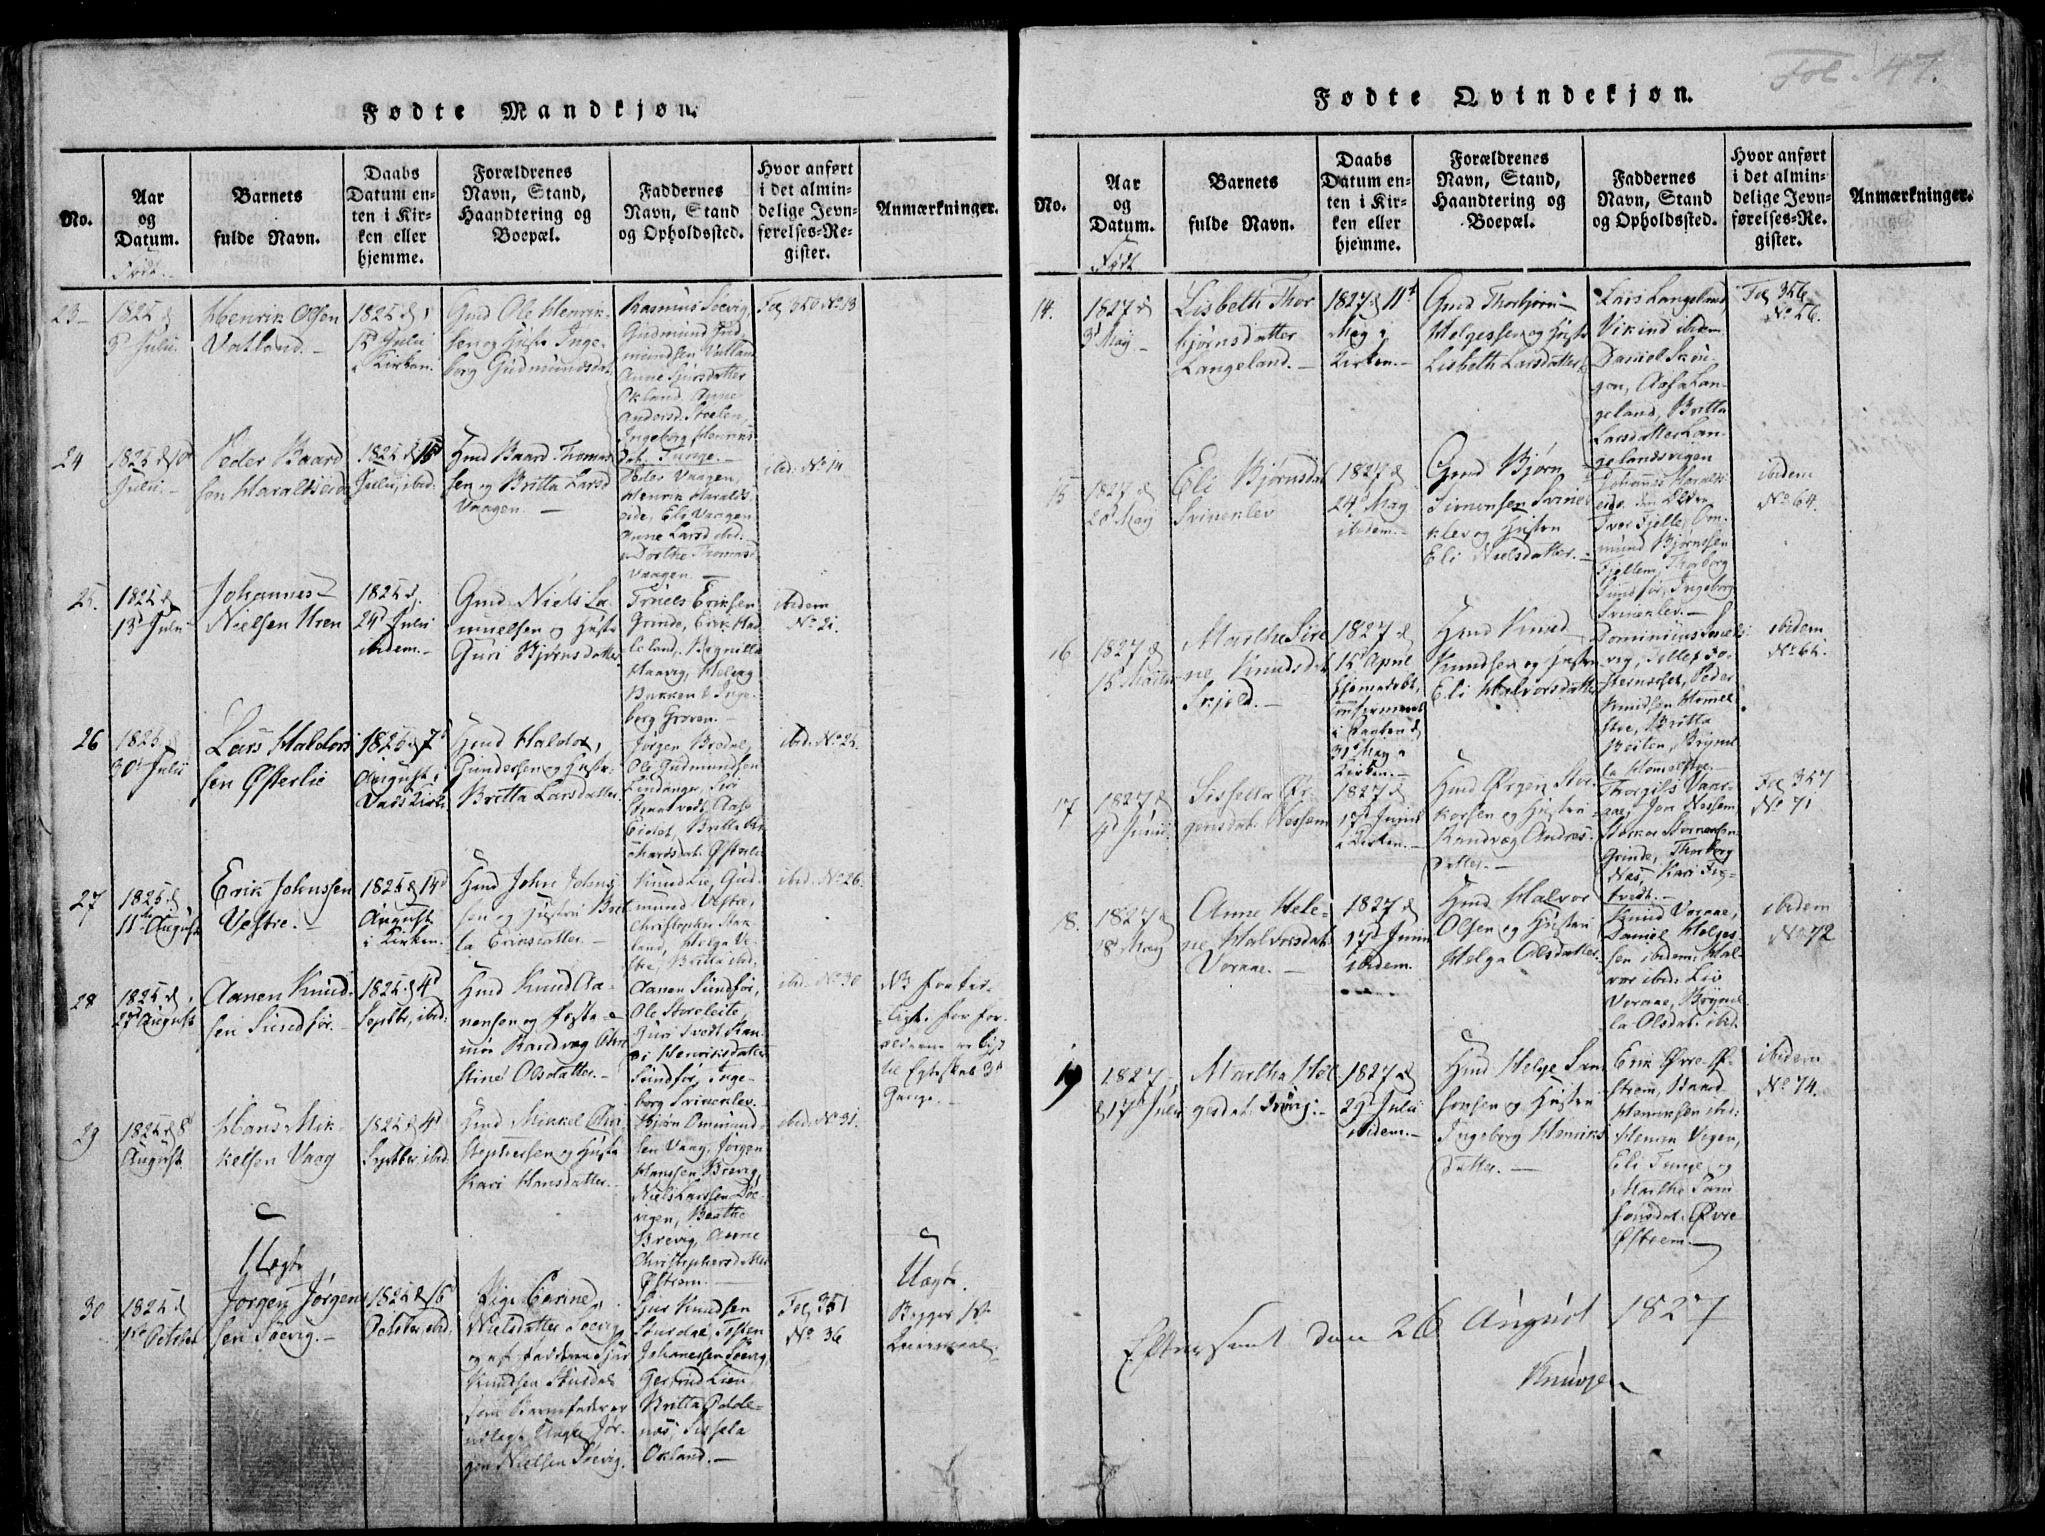 Fødte Mandkjøn.
No.
Aar
og
Datum.
Født.
Barnets
fulde Navn.
Daabs
Datum en-
ten i Kir-
ken eller
hjemme.
Forældrenes
Navn, Stand,
Haandtering og
Boepæl.
Faddernes
Navn, Stand
og Opholdssted.
Hvor anført
i det almin-
delige Jevn-
førelses-Re-
gister.
Anmærkninger.
23
1825 d
Julii.
Henrik Olsen
Vatland.
1825 d
Julii
i Kirken.
Gmd Ole Henrik-
sen og Hustr Inge-
borg Gudmundsdat
Rasmus Soevig,
Gudmund Gud-
mundsen Vatland
Anne Siursdatter
Okland, Anne
Andersd. Stoelen,
Ingeborg Henriks
dat. Tunge.
Fol 350 No 13
24
1825 d 10
Julii.
Peder Baard
sen Haraldseide
1825 d
Julii, ibid.
Hmd Baard Thomas
sen og Britta Larsd
Vaagen
Peder Vaagen,
Henrik Haralds
eide, Eli Vaagen
Anne Larsd ibid.
Dorthe Thomasd
Vaagen.
ibid. No 14
25.
1825 d
13 Julii
Johannes
Nielsen Hren
1825 d.
24 Julii
ibidem.
Gmd Niels La
muelsen og Hustr
Guri Bjørnsdatter
Troels Eriksen
Grinde, Erik Had
leland,
Haavig, Helvig
Bukken & Inge-
borg Groven.
ibidem
No 21.
26
1825 d
30 Julii
Lars Haldors
sen Østerlie
1825 d 7
August i
Vats Kirke
Hmd Haldor
Gundersen og Hustr
Britta Larsdatter.
Jørgen Bredal,
Ole Gudmundsen
Lindanger, Siri
Aase
Eidet, Britta
Østerli
ibid. No 25.
27
1825 d.
11 August
Erik Johnssen
Vestre.
1825 d 14
August
i Kirken.
Hmd John Johns
sen og Hustru Brit
ta Eriksdatter.
Knud Lie, Gud-
mund Vestre,
Christopher
land, Helga Ve-
stre, Britta ibid.
ibid. No 26.
28
1825 d
27 August
Aanen Knud-
sen Sundfør.
1825 d 4
Septbr, ibid.
Hmd Knud Aa-
nensen og Fæste-
møe Randvæg Chri
stine Olsdatter.
Aanen Sundfør,
Ole Storeleite,
Guri Tvedt,
Henriksdatter
Sundfør, Inge-
borg Svineklev.
ibid. No 30
NB
for for-
ældrene er lyst
til Egteskab 3
Gange.
29
1825 d 8
August
Hans Mik-
kelsen Vaag
1825 d 4
Septber, ibid.
Gmd Mikkel Chri
stophersen og Hustr
Kari Hansdatter.
Bjørn Ommund-
sen Vaag, Jørgen
Hanssen Brevig,
Niels Larssen Soe
vigen, Beathe
Brevig, Anne
Christophersd
Østrem.
ibid. No 31.
30
1825 d
1ste October
Uægte
Jørgen Jørgen
sen Soevig.
1825 d 16
October, ibid.
Pige Carine
Nielsdatter Soevig
Knudsen Stusdal
som Barnefader er
udlagt Ungkl Jør-
gen Nielsen Soevig.
Siur Knudsen
Torsten
Johanessen Soevig
Gertrud Lien
Britta Tolle-
næs, Sissela
Okland.
Fol 351
No 36
Uægte
Begges 1ste
Leiermaal.
Fødte Qvindekjøn.
Fol. 47.
No.
Aar
og
Datum.
Født
Barnets
fulde Navn.
Daabs
Datum en-
ten i Kir-
ken eller
hjemme.
Forældrenes
Navn, Stand,
Haandtering og
Boepæl.
Faddernes
Navn, Stand
og Opholdssted.
Hvor anført
i det almin-
delige Jevn-
førelses-Re-
gister.
Anmærkninger.
14.
1827 d
3 May
Lisbeth Thor
bjørnsdatter
Langeland.
1827 d 11
May i
Kirken.
Gmd Thorbjørn
Helgessen og Hustr
Lisbeth Larsdatter
Lars Langeland
Vikind ibidem
Daniel Skou-
gen, Aasa Lan-
geland, Britta
Larsdatter Lan-
gelandsvigen
Fol 356
No 56.
15
1827 d
20 May
Eli Bjørnsdat
Svineklev
1827 d
24 May
ibidem.
Gmd Bjørn
Simonsen Svine-
klev og Hustru
Eli Nielsdatter.
Johannes Haralds
eide den Eldre
Iver Fjelle, Om-
mund Bjørnssen
Fjellem, Thorborg
Sundfør, Ingeborg
Svineklev.
ibidem
No 64.
16
1827 d
Marthe Sire
ne Knudsdat
Skjold.
1827 d
15 April
hjemmedøbt,
confirmeret
i Daaben d
31 May i
Kirken.
Hmd Knud
Knudsen og Hustru
Eli Halvorsdatter
Dominicus Soeals
vig,
Peder
Knudsen Hommel
stoe, Britta
la Hommelstoe.
ibidem
No 65.
17
1827 d
4 Junii
Sissela Ør-
gensdat. Nessem
1827 d
17 Junii
i Kirken.
Hmd Ørgen Stor-
korsen og Hustru
Randvæg Andres-
datter.
Thorgils Vaar-
aae, Jon Nessem,
Storker Storkersen
Grinde, Thorborg
Næs, Kari
tvedt.
Fol 357
No 71
18.
1827 d
28 May
Anne Hele-
ne Halvorsdat.
Voraae.
1827 d
17 Junii
ibidem.
Hmd Halvor
Olsen og Hustru
Helga Olsdatter
Knud Voraae,
Daniel Helges-
sen ibidem, Hal-
vor ibid. Liv
Voraae, Brynel
la Olsdat. ibid.
ibidem
No 72
19
1827
d 17 Julii
Martha Hel
gesdat.
1827 d
29 Julii
ibidem.
Hmd Helge Sam
sonsen og Hustru
Ingeborg Henriks
datter.
Erik Øvre Ø-
strem, Baard
Henriksen ibid:
Hemin Vigen,
Eli Tunge og
Marthe Sam
sonsdat. Øvre
Østrem.
ibidem
No 74.
Efterseet den 26 August 1827